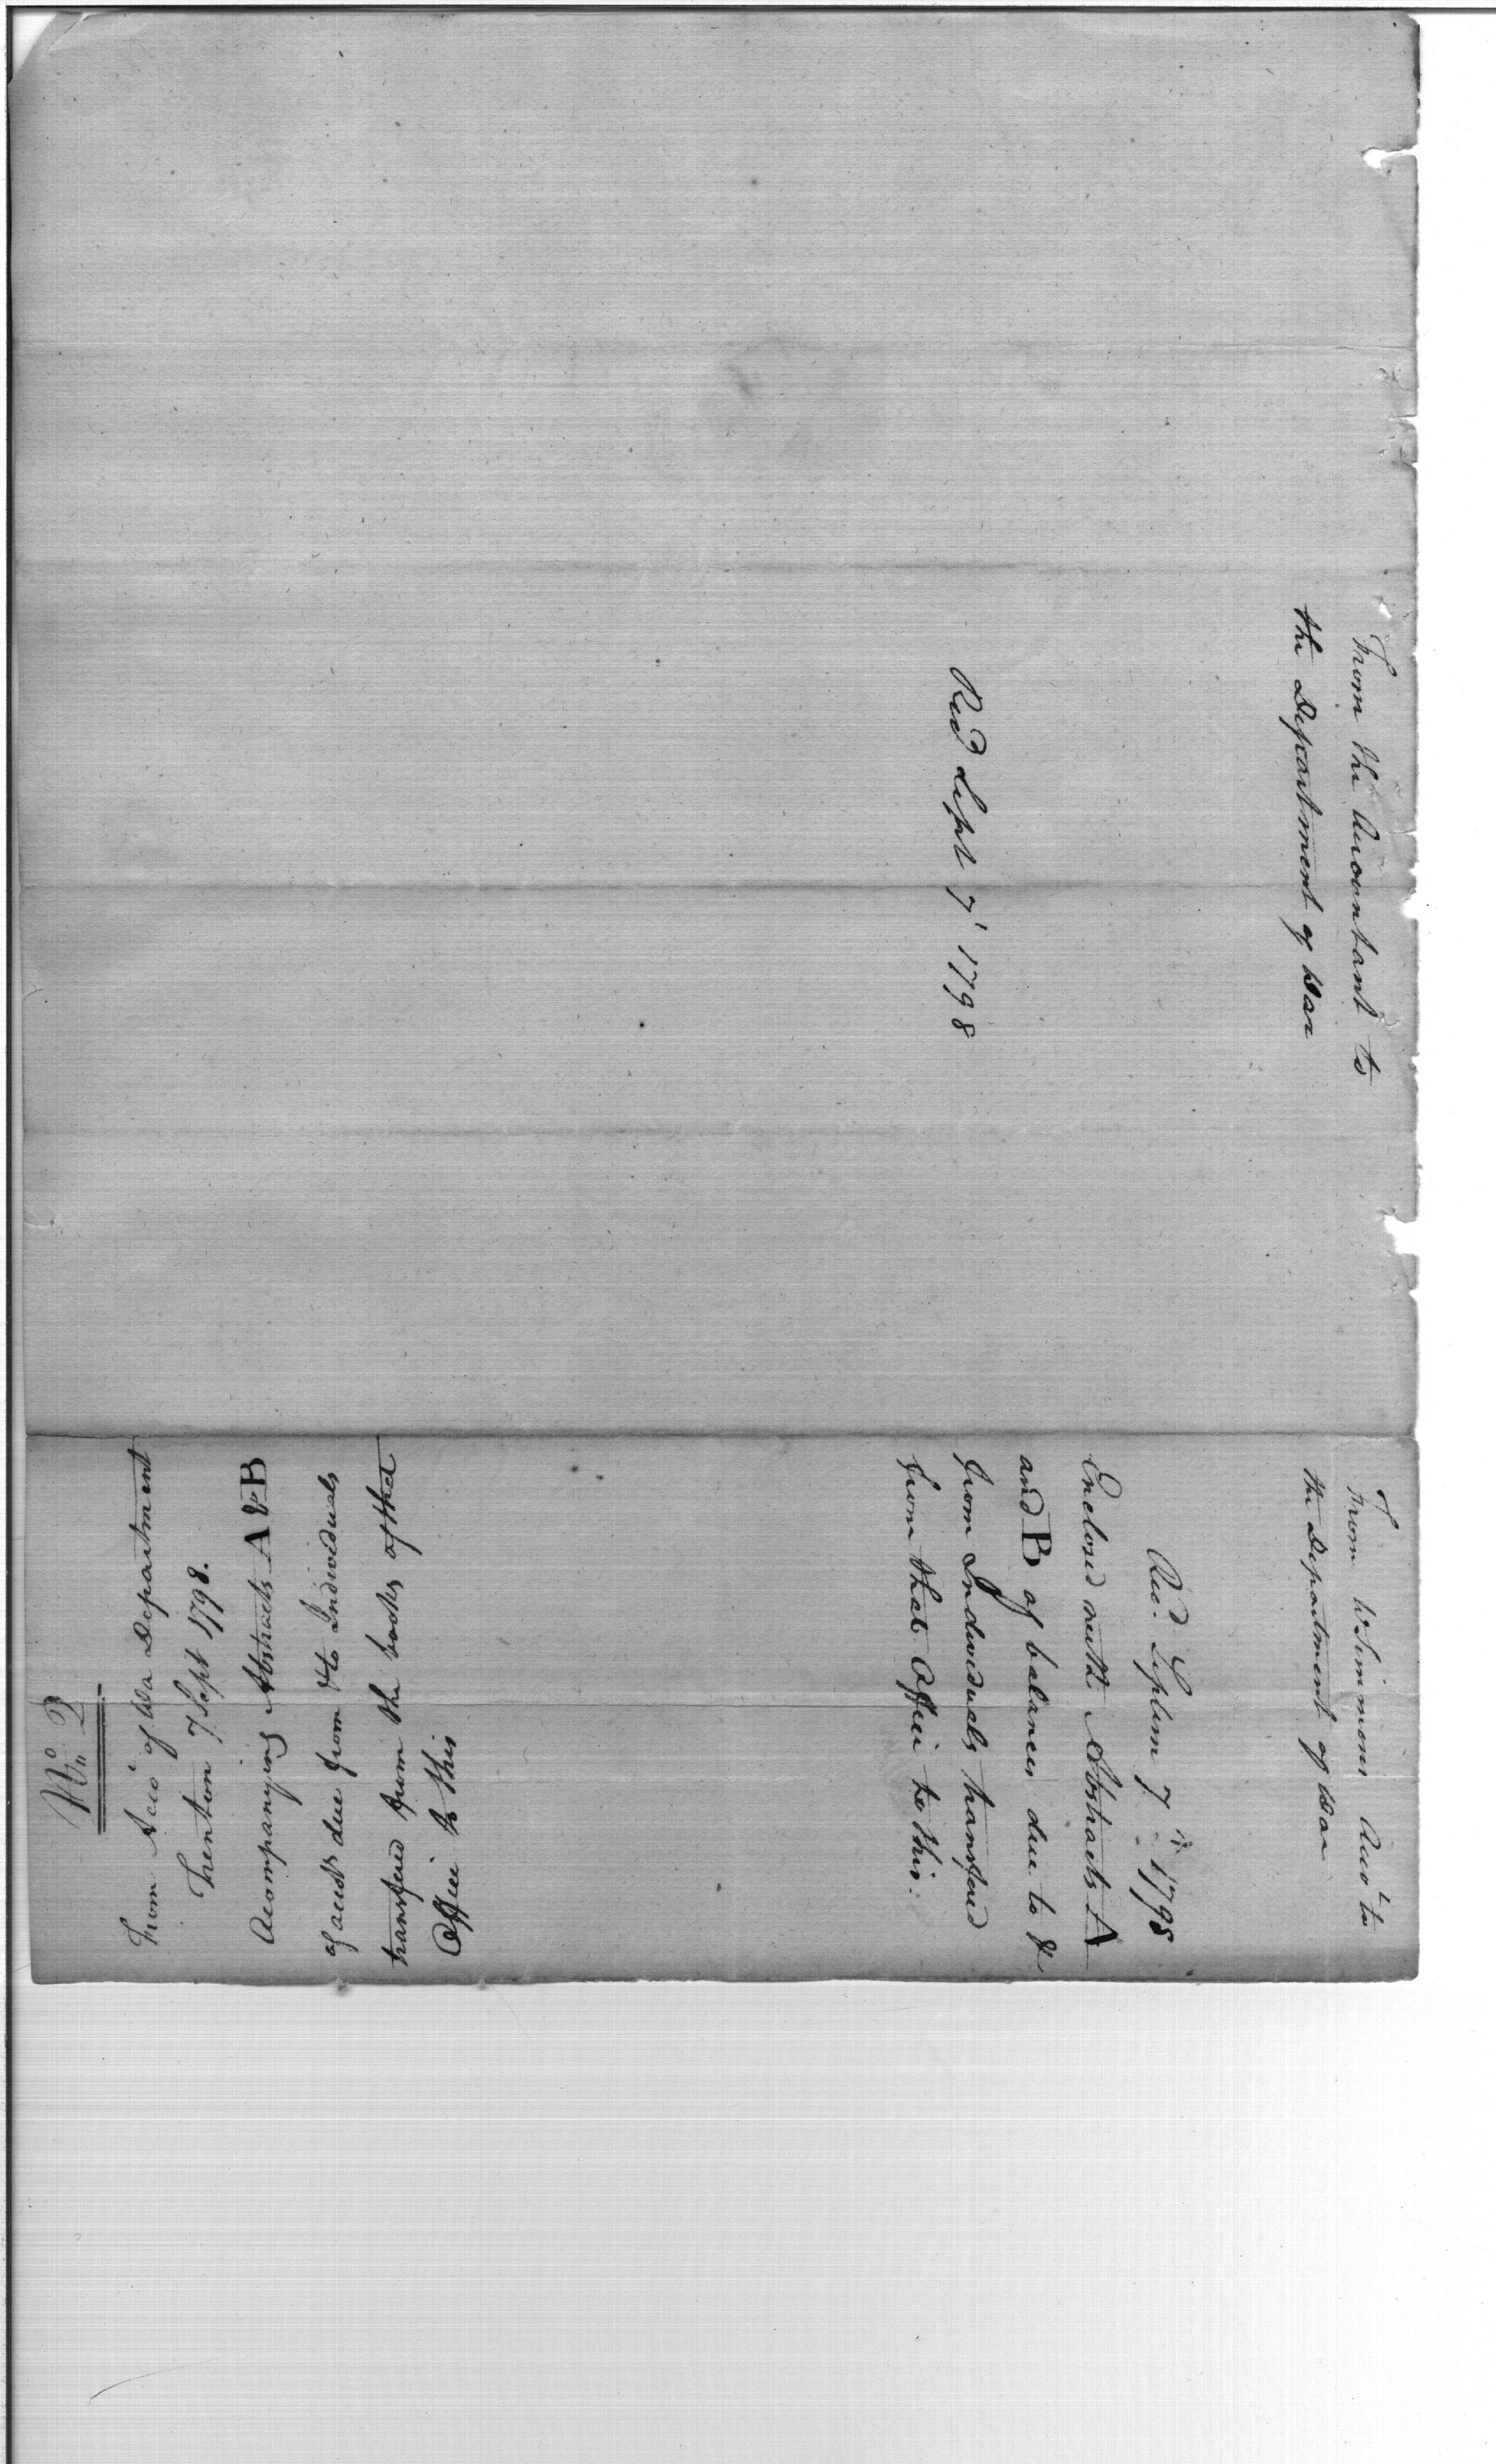 From the Accountant to
the Department of War
Recd Sept 7' 1798
From W Simmons Acct to
the Department of War
Recd. Septem 7th 1798
Enclosed with Abstracts A
and B of balances due to &
from Individuals transfered
from that Office to this.
No. 2
From Acct of Wa Department
Trenton 7 Sept 1798.
Accompanying Abstracts A & B
of accts due from & to Individuals
transfered from the books of that
Office to this